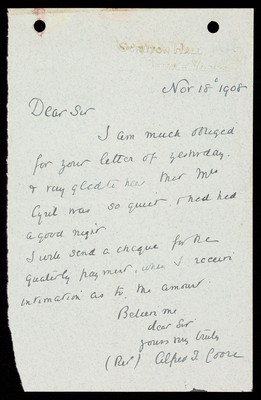 Nov 18 1908
Dear Sir
I am much obliged
for your letter of yesterday.
& very glad to hear that Mrs
Cyril was so quiet, & had had
a good night
I will send a cheque for the
quarterly payment, when I receive
intimation as to the amount.
Believe me
dear Sir
yours very truly
(Rev) Alfred